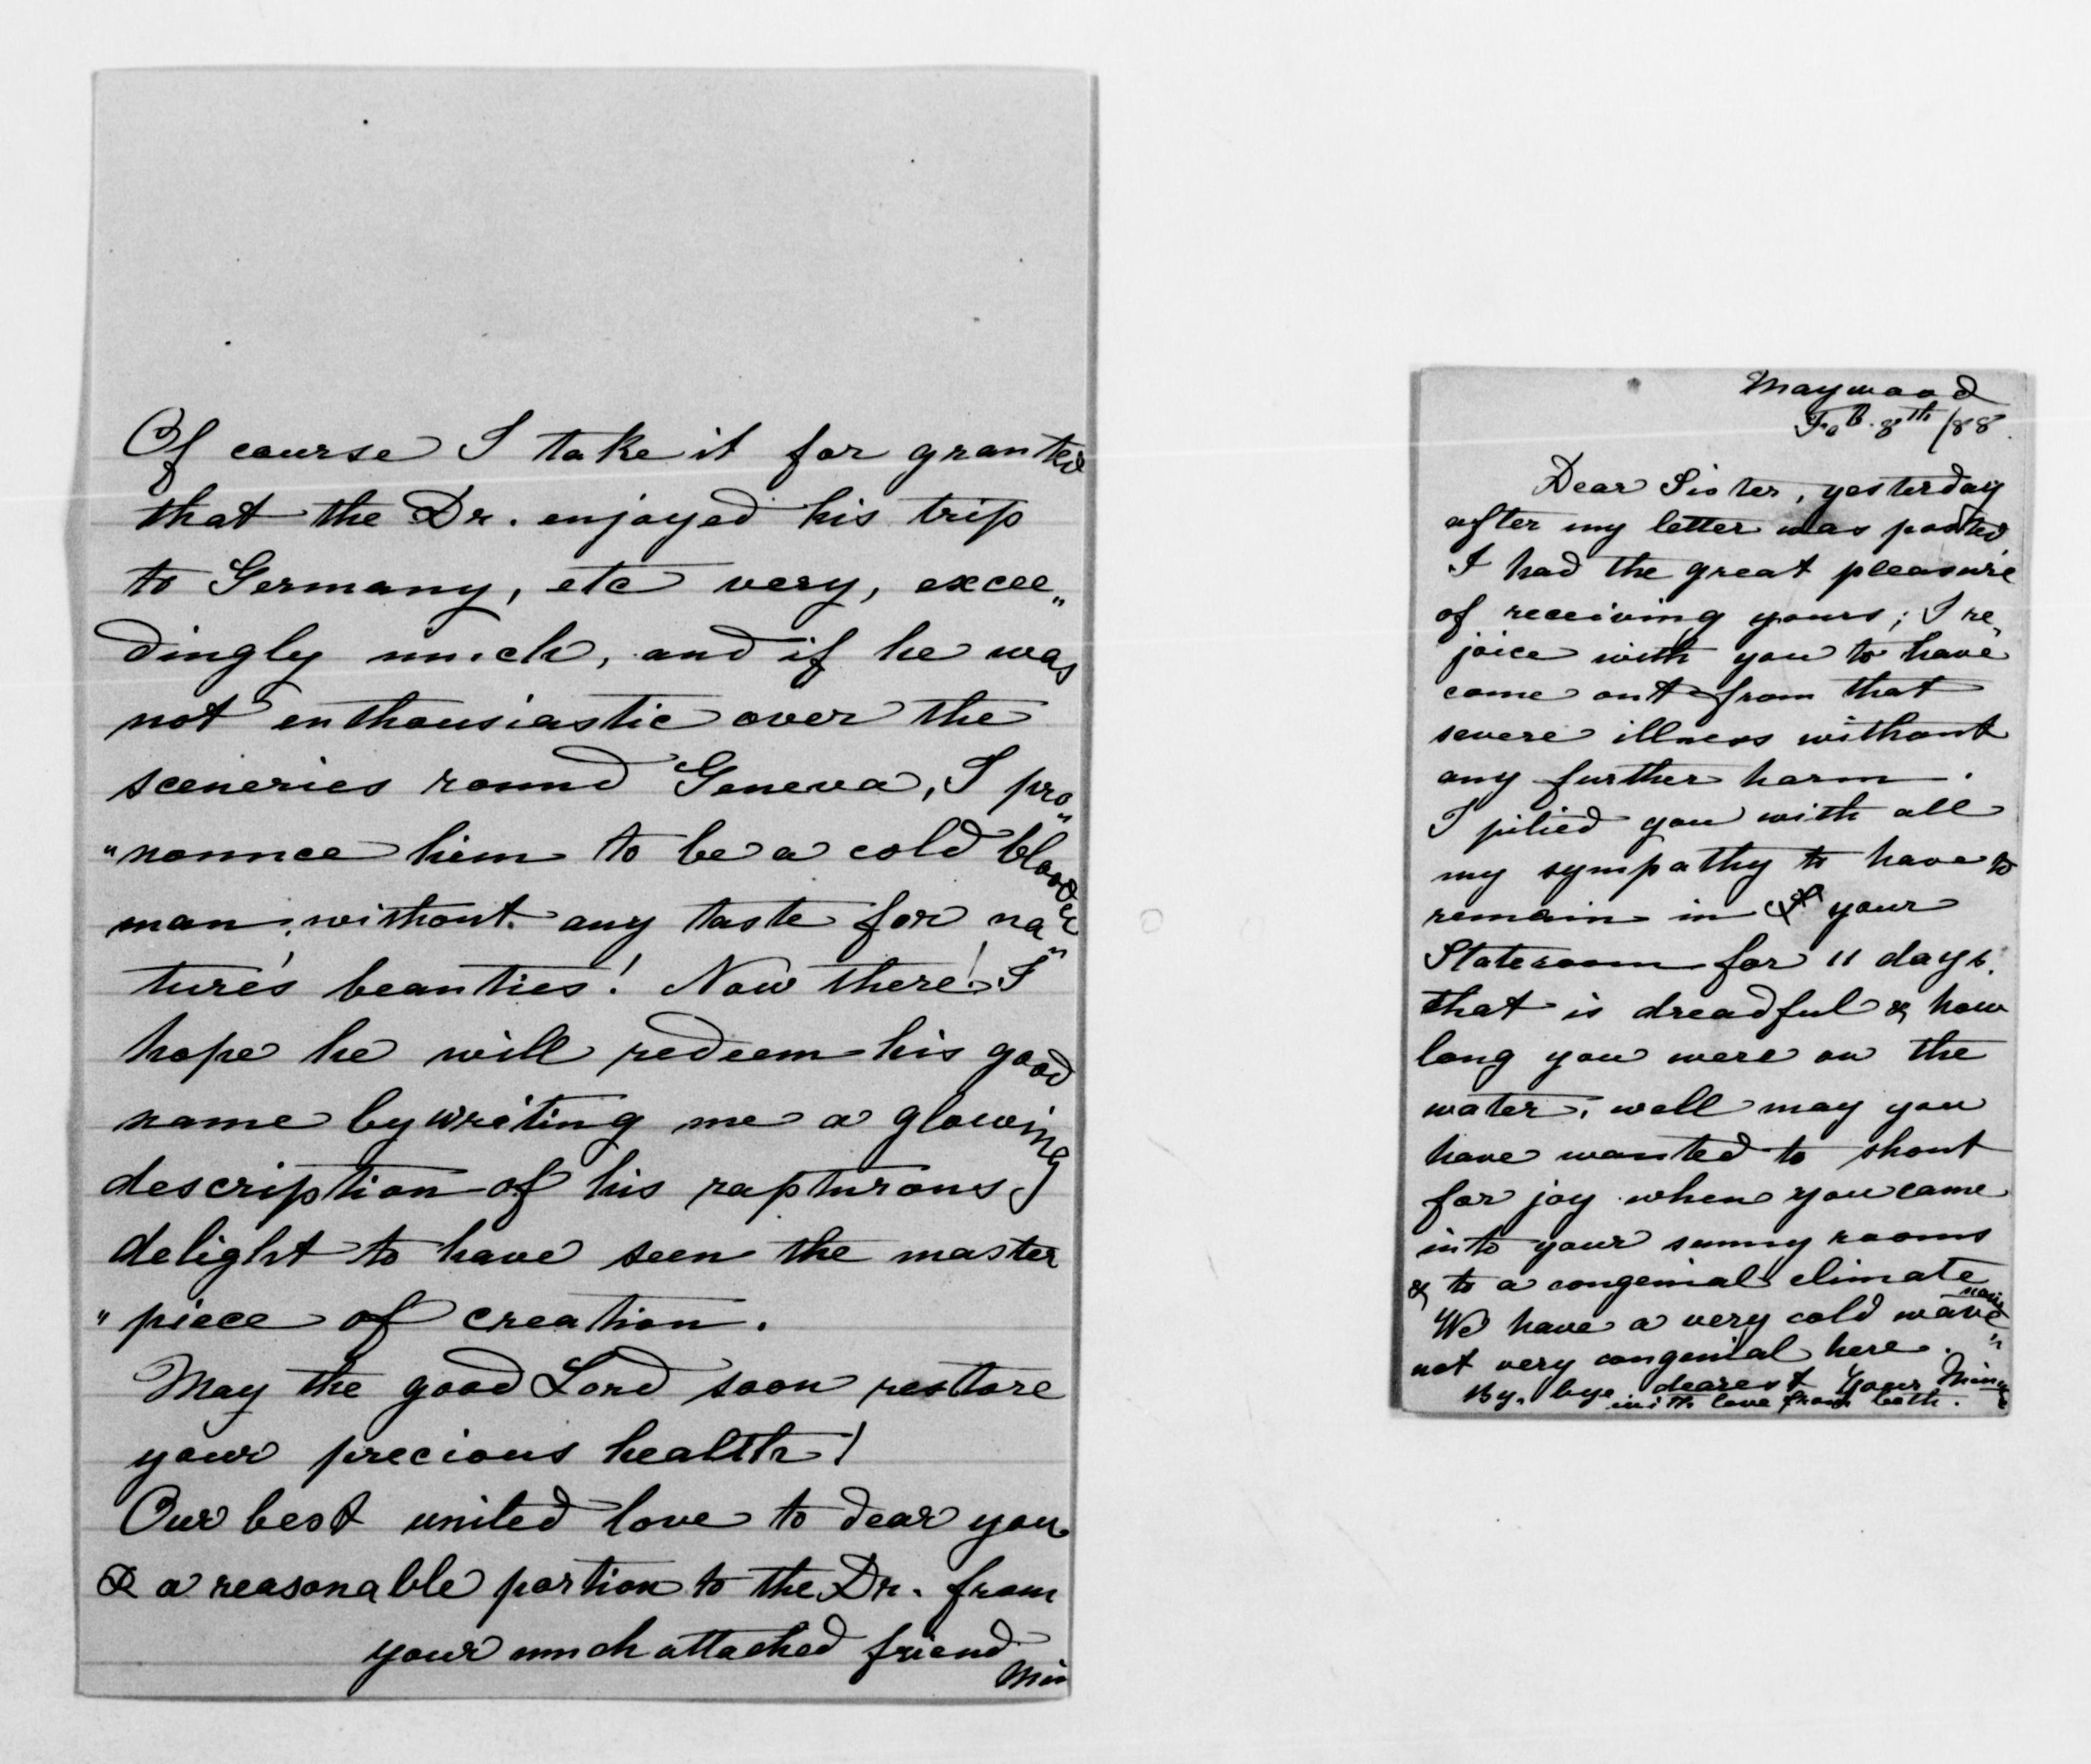 Of course I take it for granted
that the Dr. enjoyed his trip
to Germany, etc very, excee„
dingly much, and if he was
not enthousiastic over the
sceneries round Geneva, I pro„
„nounce him to be a cold blooded
man, without any taste for na„
ture's beauties! Now there! I
hope he will redeem his good
name by writing me a glowing
description of his rapturous
delight to have seen the master
„piece of creation.
May the good Lord soon restore
your precious health!
Our best united love to dear you
& a reasonable portion to the Dr. from
your much attached friend
Min
Maywood
Feb. 8th /88.
Dear Sister, yesterday
after my letter was posted
I had the great pleasure
of receiving yours; I re„
joice with you to have
come out from that
severe illness without
any further harm.
I pitied you with all
my sympathy to have to
remain in your
Stateroom for 11 days.
that is dreadful & how
long you were on the
water, well may you
have wanted to shout
for joy when you came
into your sunny rooms
& to a congenial climate
We have a very cold wave now
not very congenial here.
By, bye dearest Your Minnie
with love from both.